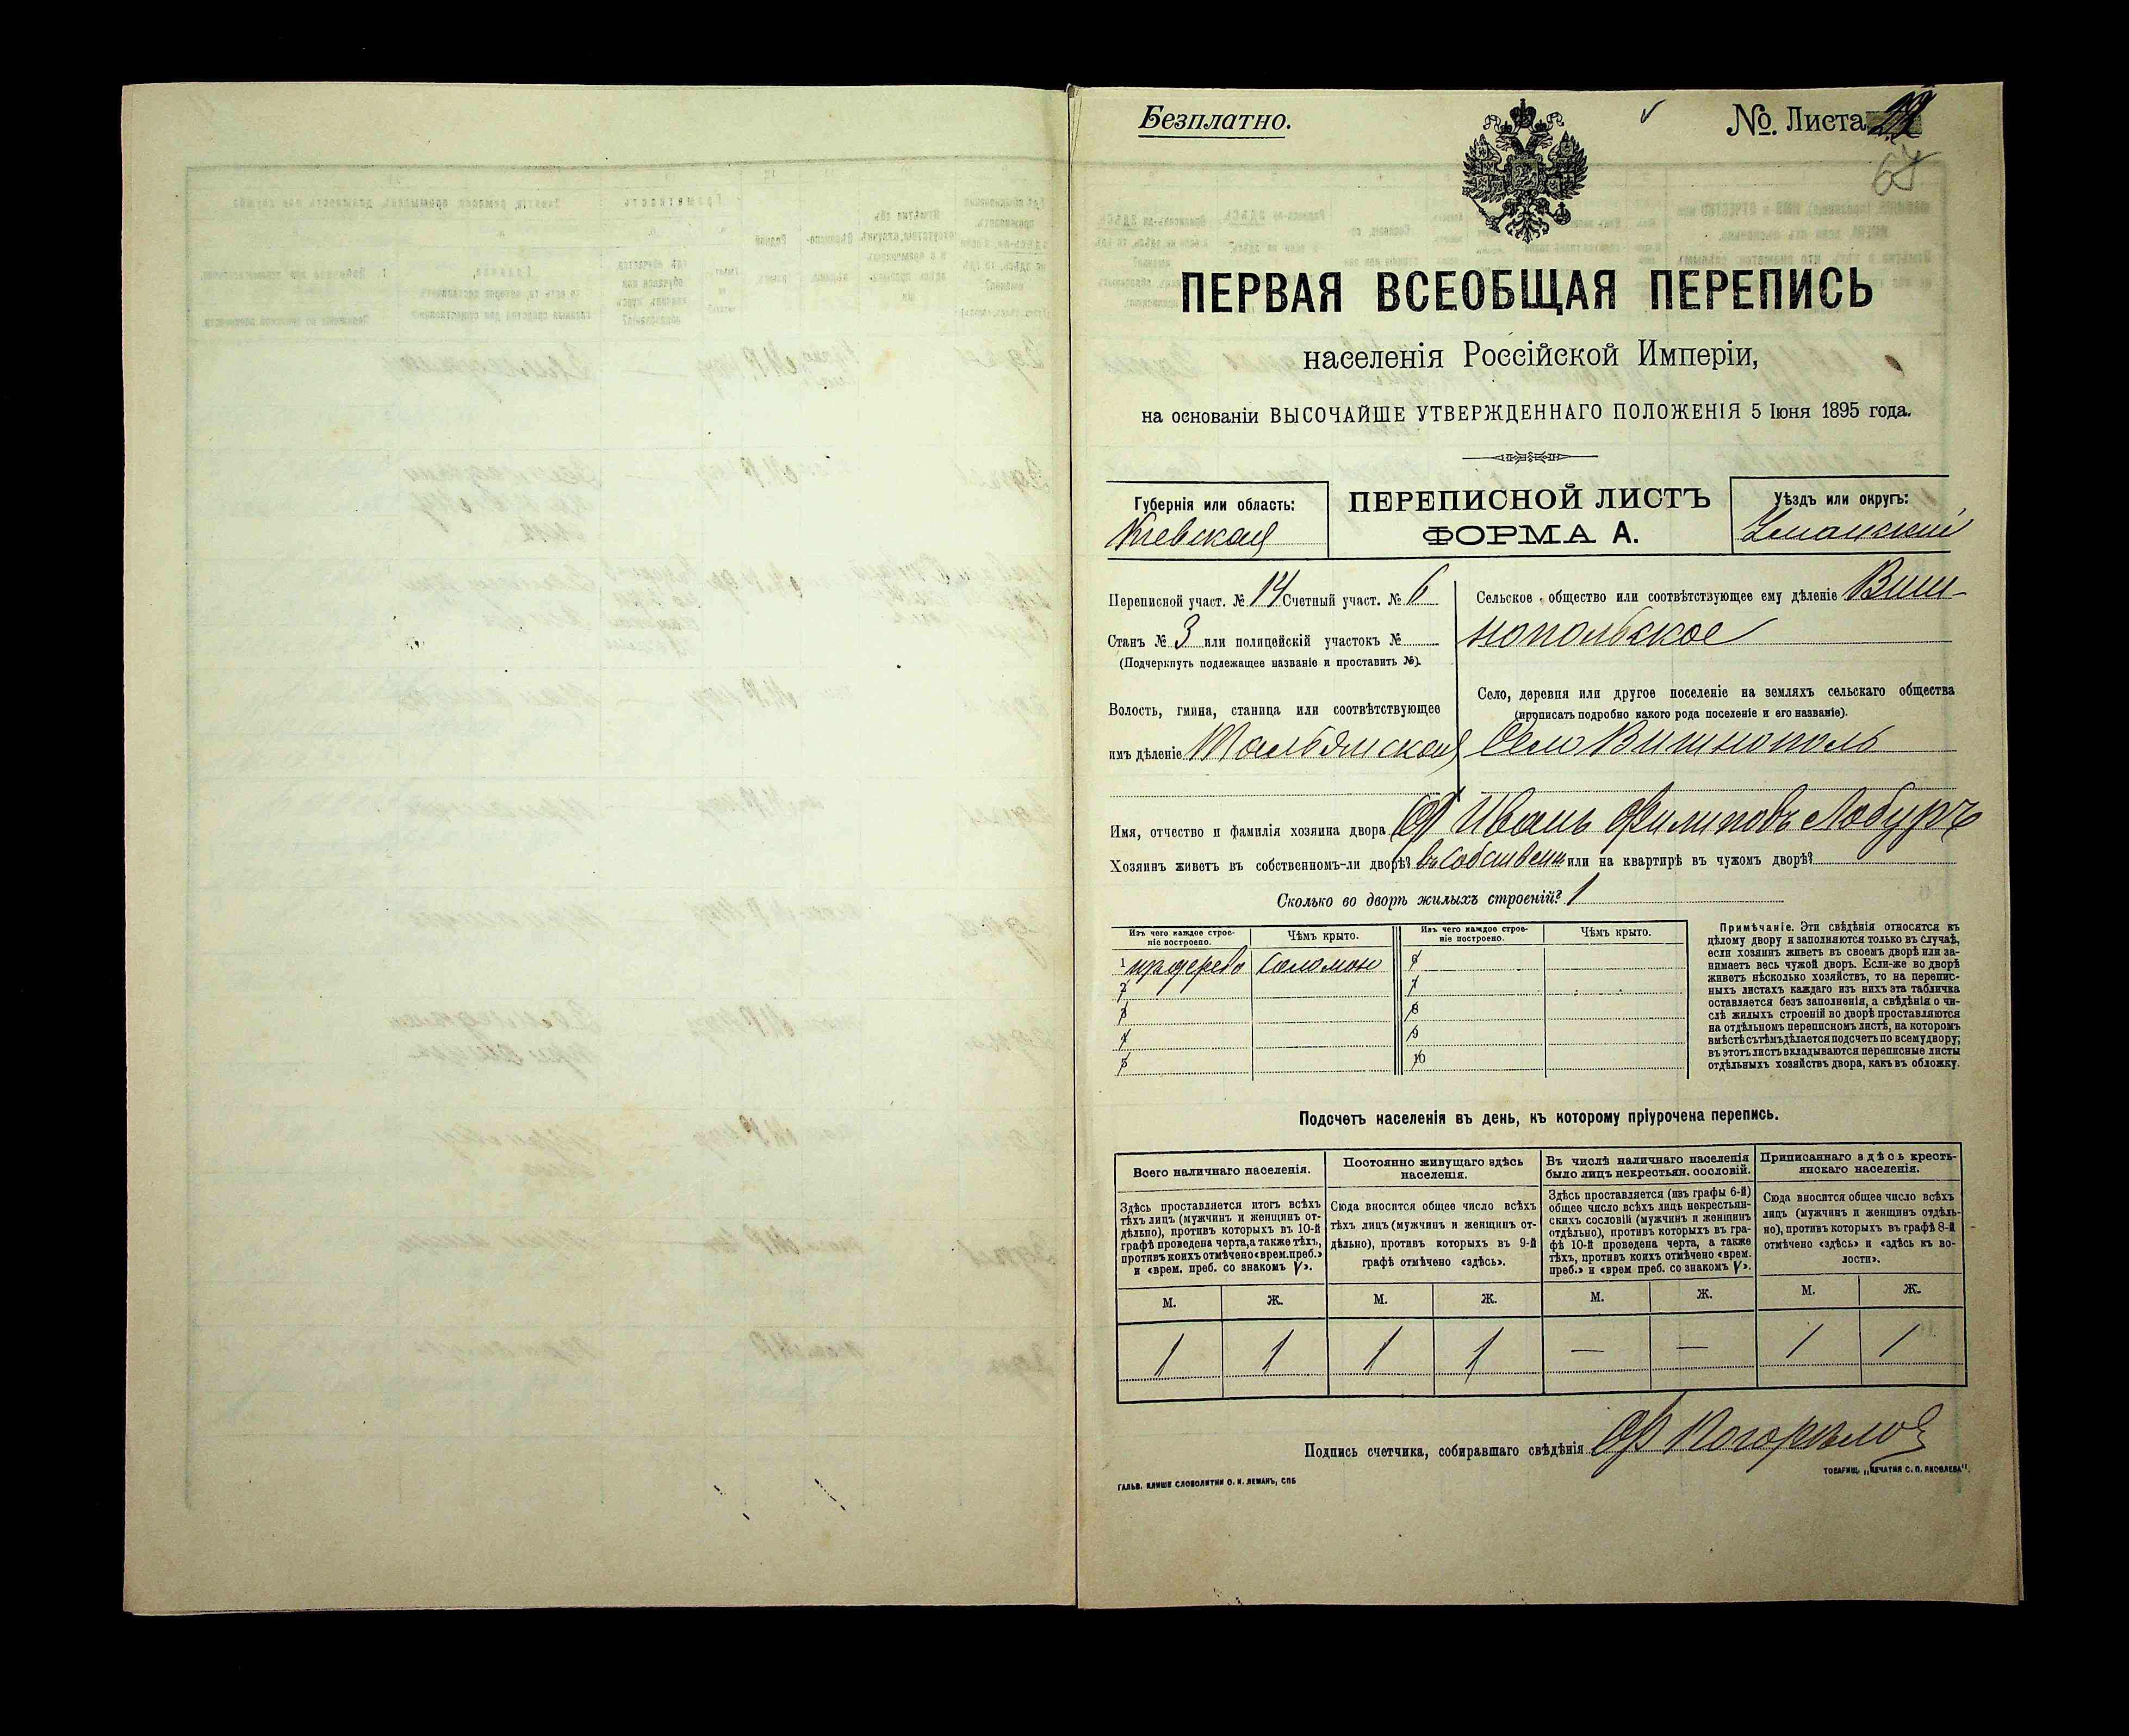 Безплатно.
№. Листа
ПЕРВАЯ ВСЕОБЩАЯ ПЕРЕПИСЬ
населенія Россійской Имперіи,
на основаніи ВЫСОЧАЙШЕ УТВЕРЖДЕННАГО ПОЛОЖЕНІЯ 5 Іюня 1895 года.
Губернія или область:
Кіевская
ПЕРЕПИСНОЙ ЛИСТЪ
ФОРМА А.
Уѣздъ или округъ:
Уманскій
Переписной участ. № 14 Счетный участ. № 6
Станъ № 3 или полицейскій участокъ №
(Подчеркнуть подлежащее названіе и проставить №).
Волость, гмина, станица или соотвѣтствующее
имъ дѣленіе Тальянская
Сельское общество или соотвѣтствующее ему дѣленіе Виш-
нопольское
Село, деревня или другое поселеніе на земляхъ сельскаго общества
(прописать подробно какого рода поселеніе и его названіе).
Село Вишнополь
Имя, отчество и фамилія хозяина двора Иванъ Филиповъ
Хозяинъ живетъ въ собственномъ-ли дворѣ? въ собствен или на квартирѣ въ чужомъ дворѣ?
Сколько во дворѣ жилыхъ строеній? 1
Изъ чего каждое строе-
ніе построено.
Чѣмъ крыто.
Изъ чего каждое строе-
ніе построено.
Чѣмъ крыто.
1 соломою 6
2 7
3 8
4 9
5 10
Примѣчаніе. Эти свѣдѣнія относятся къ
цѣлому двору и заполняются только въ случаѣ,
если хозяинъ живетъ въ своемъ дворѣ или за-
нимаетъ весь чужой дворъ. Если-же во дворѣ
живетъ нѣсколько хозяйствъ, то на перепис-
ныхъ листахъ каждаго изъ нихъ эта табличка
оставляется безъ заполненія, а свѣдѣнія о чи-
слѣ жилыхъ строеній во дворѣ проставляются
на отдѣльномъ переписномъ листѣ, на которомъ
вмѣстѣ съ тѣмъ дѣлается подсчетъ по всему двору;
въ этотъ листъ вкладываются переписные листы
отдѣльныхъ хозяйствъ двора, какъ въ обложку.
Подсчетъ населенія въ день, къ которому пріурочена перепись.
Всего наличнаго населенія.
Здѣсь проставляется итогъ всѣхъ
тѣхъ лицъ (мужчинъ и женщинъ от-
дѣльно), противъ которыхъ въ 10-й
графѣ проведена черта, а также тѣхъ,
противъ коихъ отмѣчено «врем. преб.»
и «врем. преб. со знакомъ V».
Постоянно живущаго здѣсь
населенія.
Сюда вносится общее число всѣхъ
тѣхъ лицъ (мужчинъ и женщинъ от-
дѣльно), противъ которыхъ въ 9-й
графѣ отмѣчено «здѣсь».
Въ числѣ наличнаго населенія
было лицъ некрестьян. сословій.
Здѣсь проставляется (изъ графы 6-й)
общее число всѣхъ лицъ некрестьян-
скихъ сословій (мужчинъ и женщинъ
отдѣльно), противъ которыхъ въ гра-
фѣ 10-й проведена черта, а также
тѣхъ, противъ коихъ отмѣчено «врем.
преб.» и «врем преб. со знакомъ V».
Приписаннаго здѣсь кресть-
янскаго населенія.
Сюда вносится общее число всѣхъ
лицъ (мужчинъ и женщинъ отдѣль-
но), противъ которыхъ въ графѣ 8-й
отмѣчено «здѣсь» и «здѣсь къ во-
лости».
М. Ж. М. Ж. М. Ж. М. Ж.
1 1 1 1 — — 1 1
Подпись счетчика, собиравшаго свѣдѣнія
ГАЛЬВ. КЛИШЕ СЛОВОЛИТНИ О. И. ЛЕМАНЪ, СПБ
ТОВАРИЩ. „ПЕЧАТНЯ С. П. ЯКОВЛЕВА“.